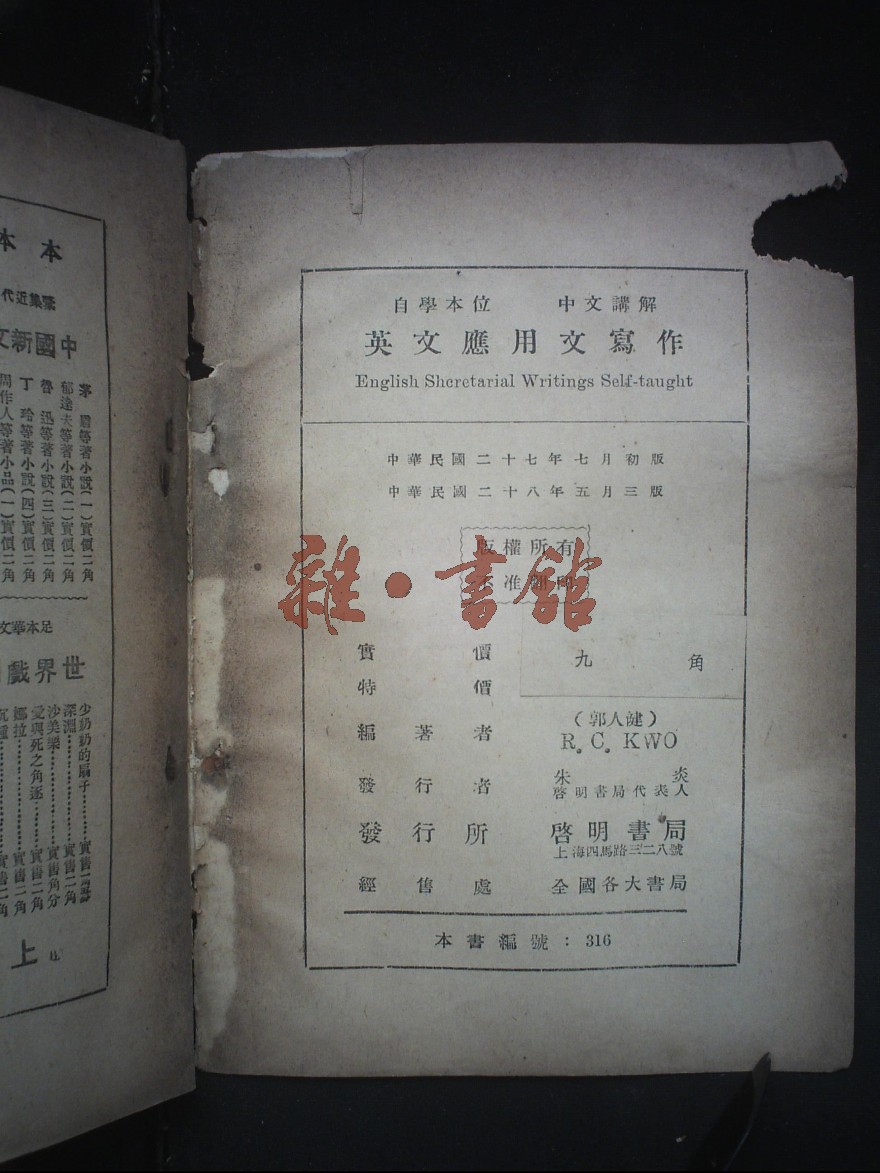 自學本位 中文講解
英文應用文寫作
English Shcretarial Writings Self-taught
中華民國二十七年七月初版
中華民國二十八年五月三版
版權所有
不准翻印
雜·書館
實價 九角
特價
編著者 (郭人健)
R. C. KWO
發行者 朱炎
啓明書局代表人
發行所 啓明書局
上海四馬路三二八號
經售處 全國各大書局
本書編號：316
本本
彙集近代
中國新文
茅盾等著小說(一)實價二角
郁達夫等著小說(二)實價二角
魯迅等著小說(三)實價二角
丁玲等著小說(四)實價二角
周作人等著小品(一)實價二角
足本華文
世界戲
少奶奶的扇子
深淵 實售二角
沙美樂 實售角分
愛與死之角逐 實售二角
娜拉 實售二角
沉鐘
上